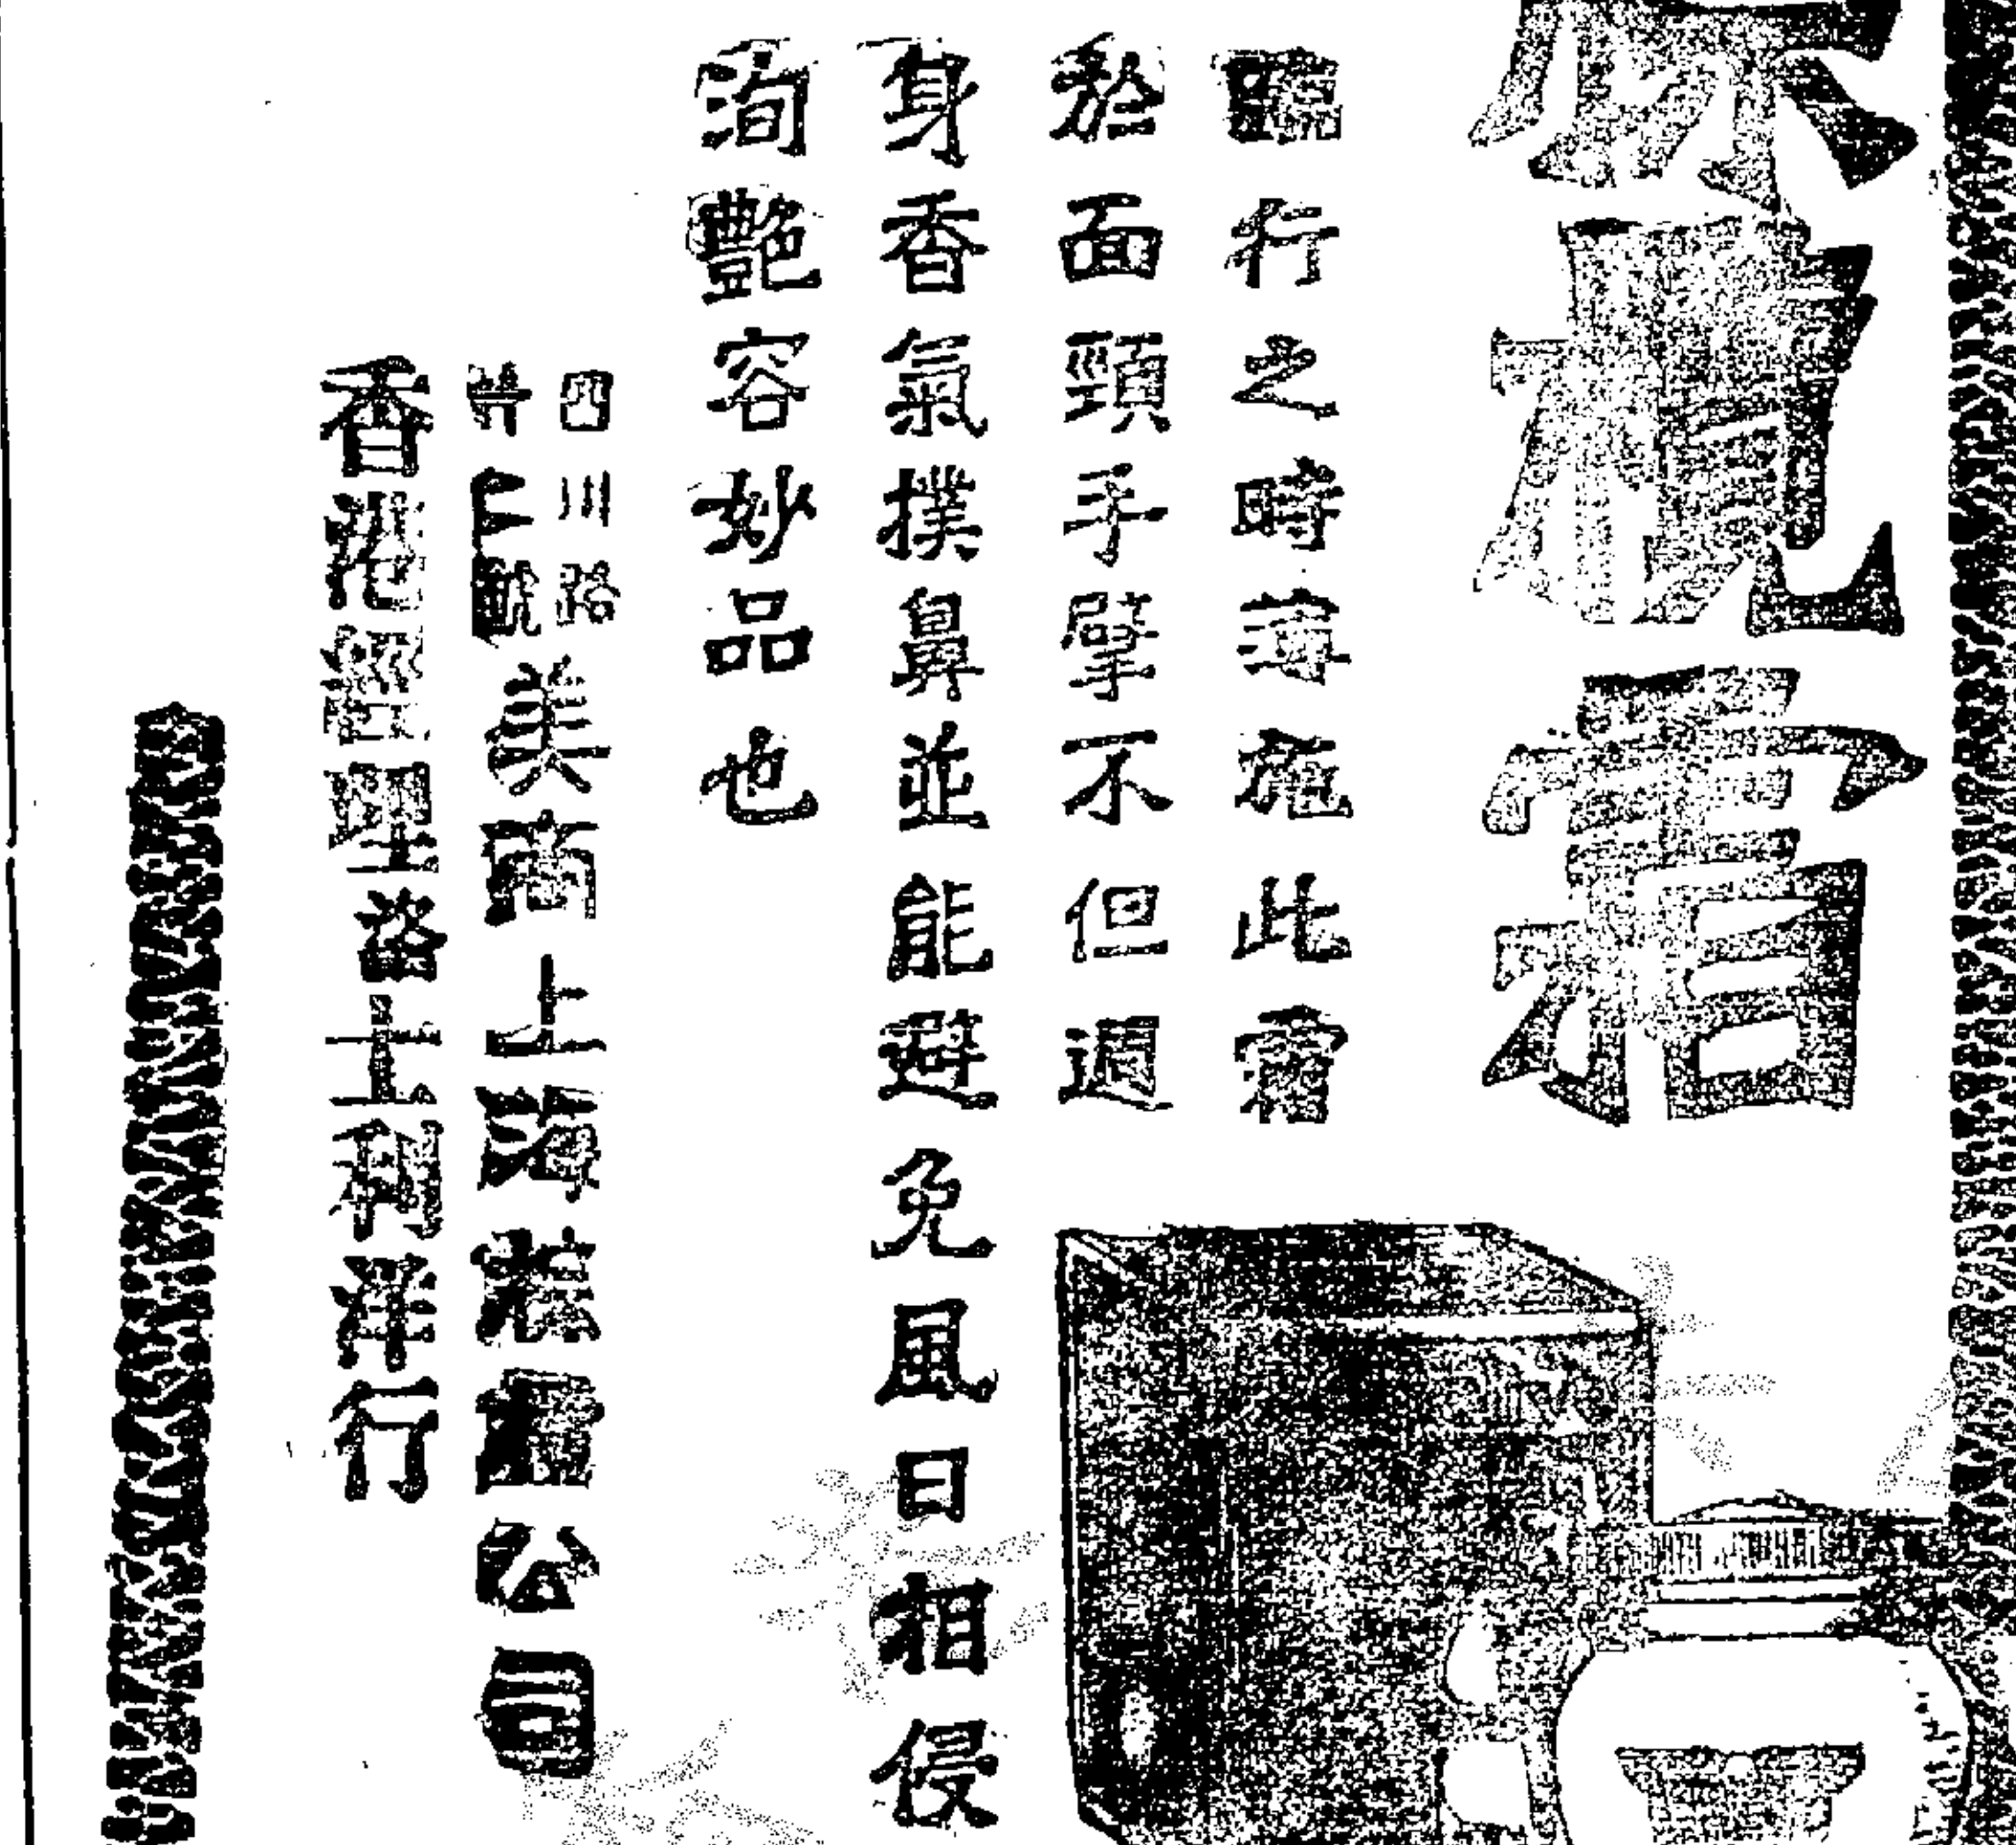 霜
臨行之時薄施此霜
於面頸手擘不但週
身香氣撲鼻並能避免風日相侵
洵艷容妙品也
四川路
號
美商上海裝品公司
香港經理洛士利洋行